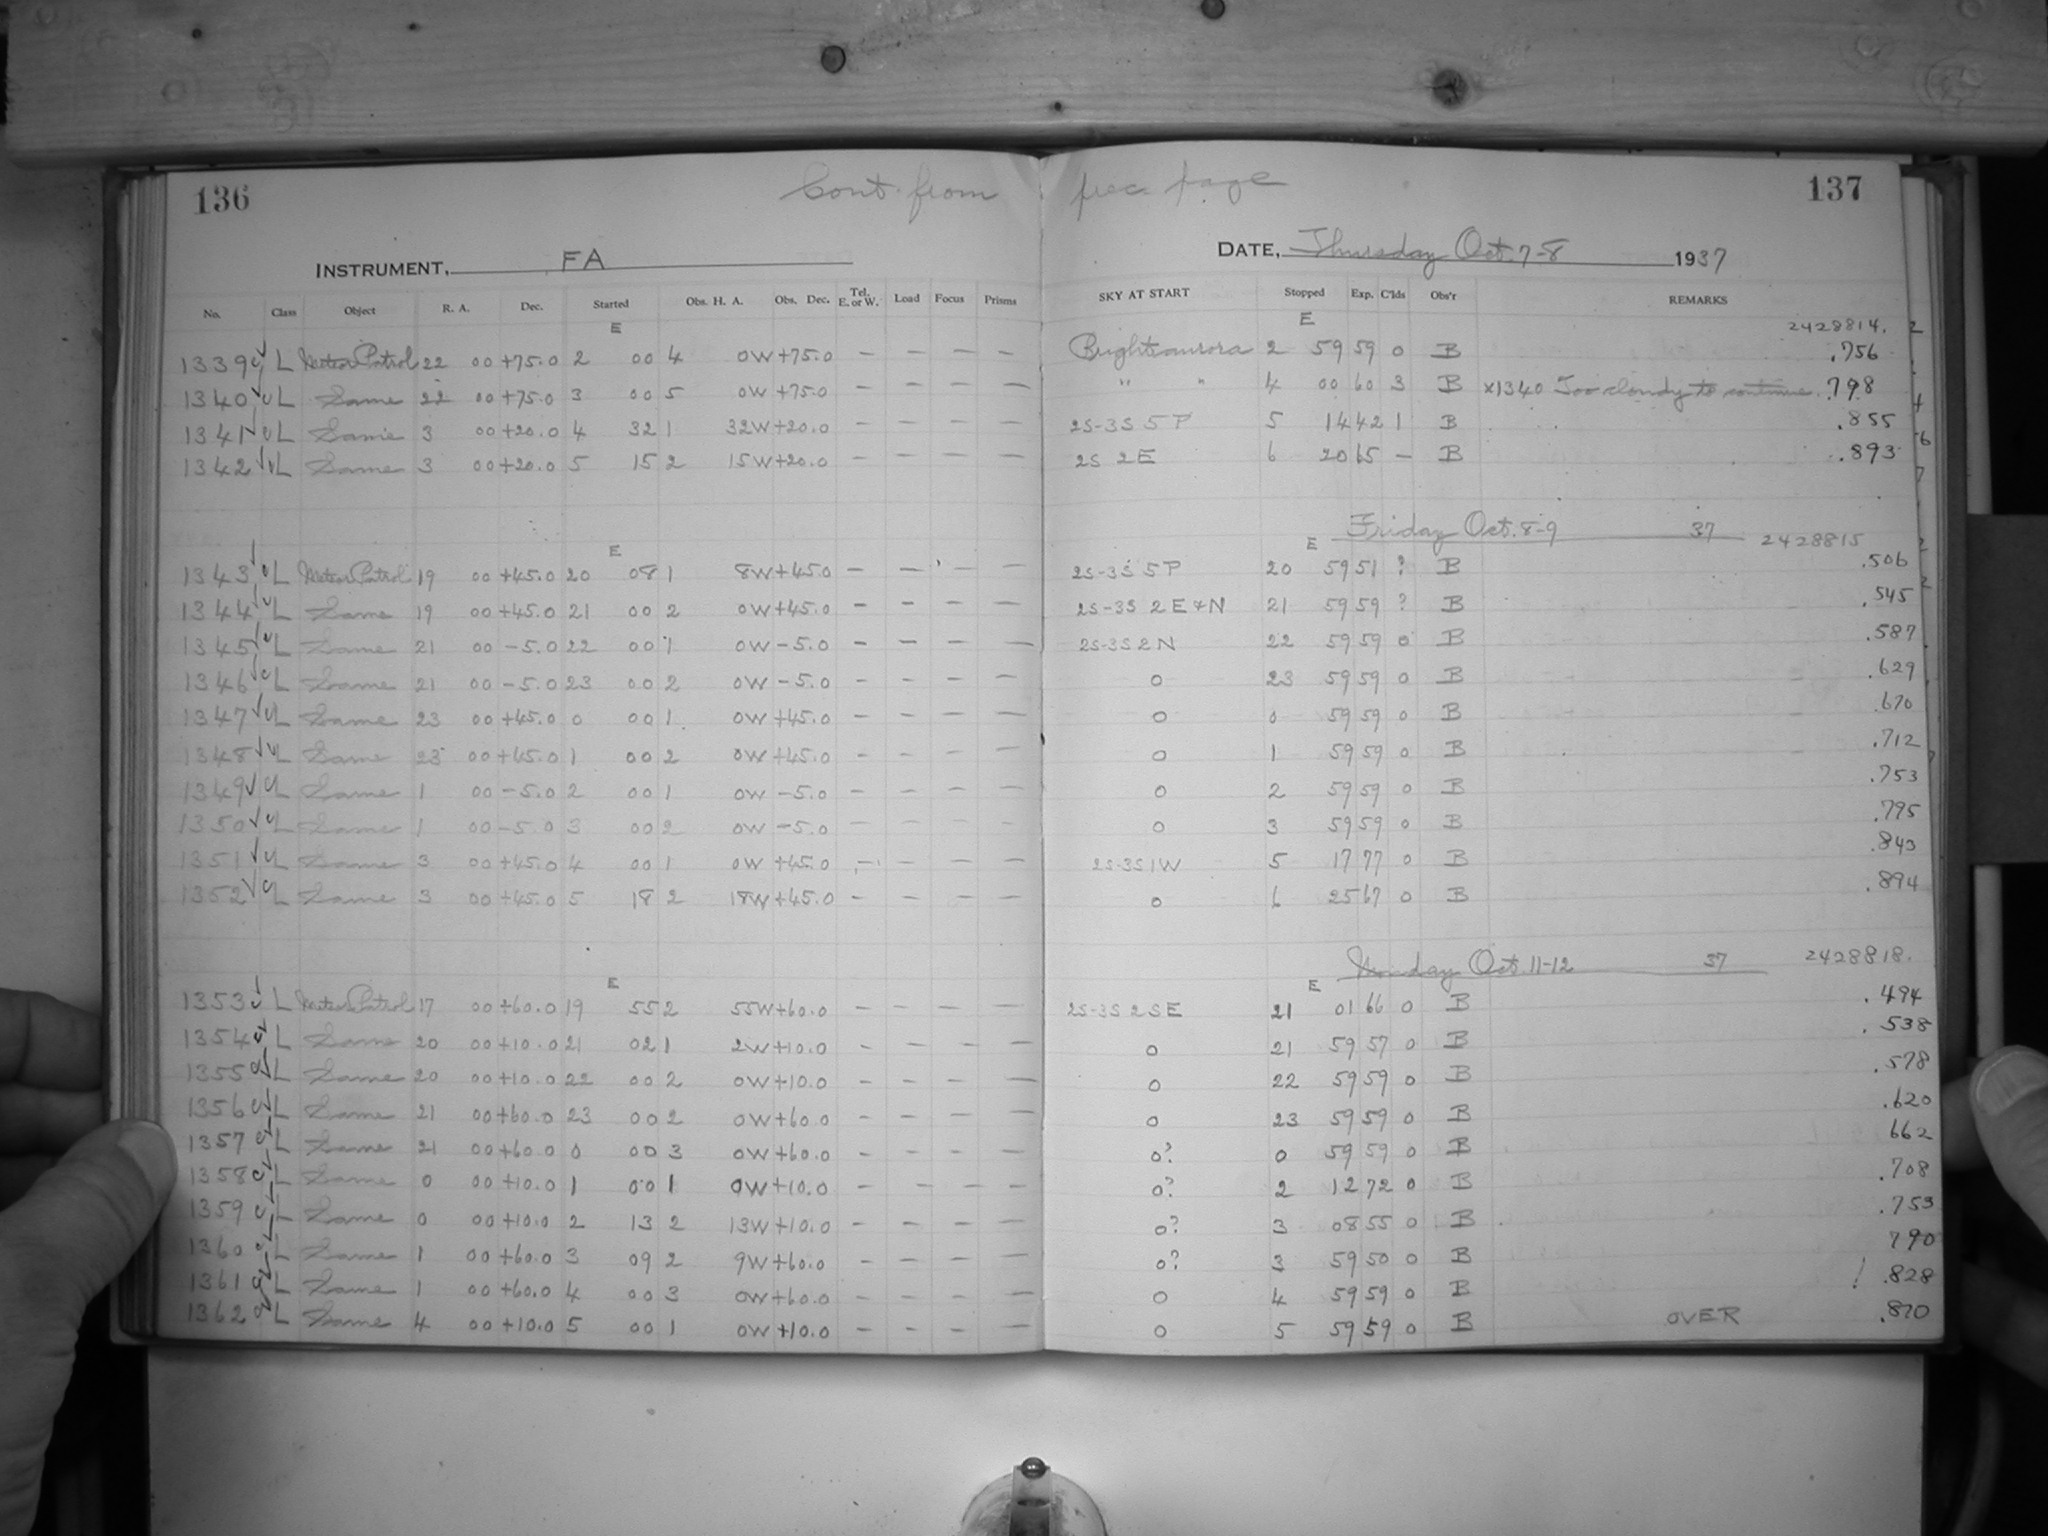 136 Cont. from prec. page 137
INSTRUMENT, FA DATE, Thursday Oct. 7-8 1937
No. Class Object R. A. Dec. Started Obs. H. A. Obs. Dec. Tel. E. or W. Load Focus Prisms SKY AT START Stopped Exp. C'lds Obs'r REMARKS
E E 2428814.
1339 L Meteor Patrol 22 00 +75.0 2 00 4 0W +75.0 — — — — Bright aurora 2 59 59 0 B .756
1340 L Same 22 00 +75.0 3 00 5 0W +75.0 — — — — " " 4 00 60 3 B x1340 Too cloudy to continue .798
1341 L Same 3 00 +20.0 4 32 1 32W +20.0 — — — — 2S-3S 5 P 5 14 42 1 B .855
1342 L Same 3 00 +20.0 5 15 2 15W +20.0 — — — — 2S 2E 6 20 65 — B .893
Friday Oct. 8-9 37 2428815
E E
1343 L Meteor Patrol 19 00 +45.0 20 08 1 8W +45.0 — — — — 2S-3S 5 P 20 59 51 ? B .506
1344 L Same 19 00 +45.0 21 00 2 0W +45.0 — — — — 2S-3S 2 E & N 21 59 59 ? B .545
1345 L Same 21 00 -5.0 22 00 1 0W -5.0 — — — — 2S-3S 2N 22 59 59 0 B .587
1346 L Same 21 00 -5.0 23 00 2 0W -5.0 — — — — 0 23 59 59 0 B .629
1347 L Same 23 00 +45.0 0 00 1 0W +45.0 — — — — 0 0 59 59 0 B .670
1348 L Same 23 00 +45.0 1 00 2 0W +45.0 — — — — 0 1 59 59 0 B .712
1349 L Same 1 00 -5.0 2 00 1 0W -5.0 — — — — 0 2 59 59 0 B .753
1350 L Same 1 00 -5.0 3 00 2 0W -5.0 — — — — 0 3 59 59 0 B .795
1351 L Same 3 00 +45.0 4 00 1 0W +45.0 — — — — 2S-3S 1W 5 17 77 0 B .843
1352 L Same 3 00 +45.0 5 18 2 18W +45.0 — — — — 0 6 25 67 0 B .894
Monday Oct. 11-12 37 2428818.
E E
1353 L Meteor Patrol 17 00 +60.0 19 55 2 55W +60.0 — — — — 2S-3S 2 SE 21 01 66 0 B .494
1354 L Same 20 00 +10.0 21 02 1 2W +10.0 — — — — 0 21 59 57 0 B .538
1355 L Same 20 00 +10.0 22 00 2 0W +10.0 — — — — 0 22 59 59 0 B .578
1356 L Same 21 00 +60.0 23 00 2 0W +60.0 — — — — 0 23 59 59 0 B .620
1357 L Same 21 00 +60.0 0 00 3 0W +60.0 — — — — 0? 0 59 59 0 B 662
1358 L Same 0 00 +10.0 1 00 1 0W +10.0 — — — — 0? 2 12 72 0 B .708
1359 L Same 0 00 +10.0 2 13 2 13W +10.0 — — — — 0? 3 08 55 0 B .753
1360 L Same 1 00 +60.0 3 09 2 9W +60.0 — — — — 0? 3 59 50 0 B 790
1361 L Same 1 00 +60.0 4 00 3 0W +60.0 — — — — 0 4 59 59 0 B .828
1362 L Same 4 00 +10.0 5 00 1 0W +10.0 — — — — 0 5 59 59 0 B OVER .870